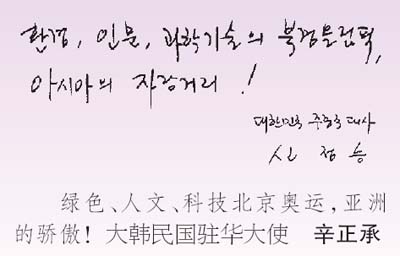 환경, 인문, 과학기술의 북경올림픽,
아시아의 자랑거리!
대한민국 주중국 대사
신 정 승
绿色、人文、科技北京奥运,亚洲
的骄傲！大韩民国驻华大使 辛正承